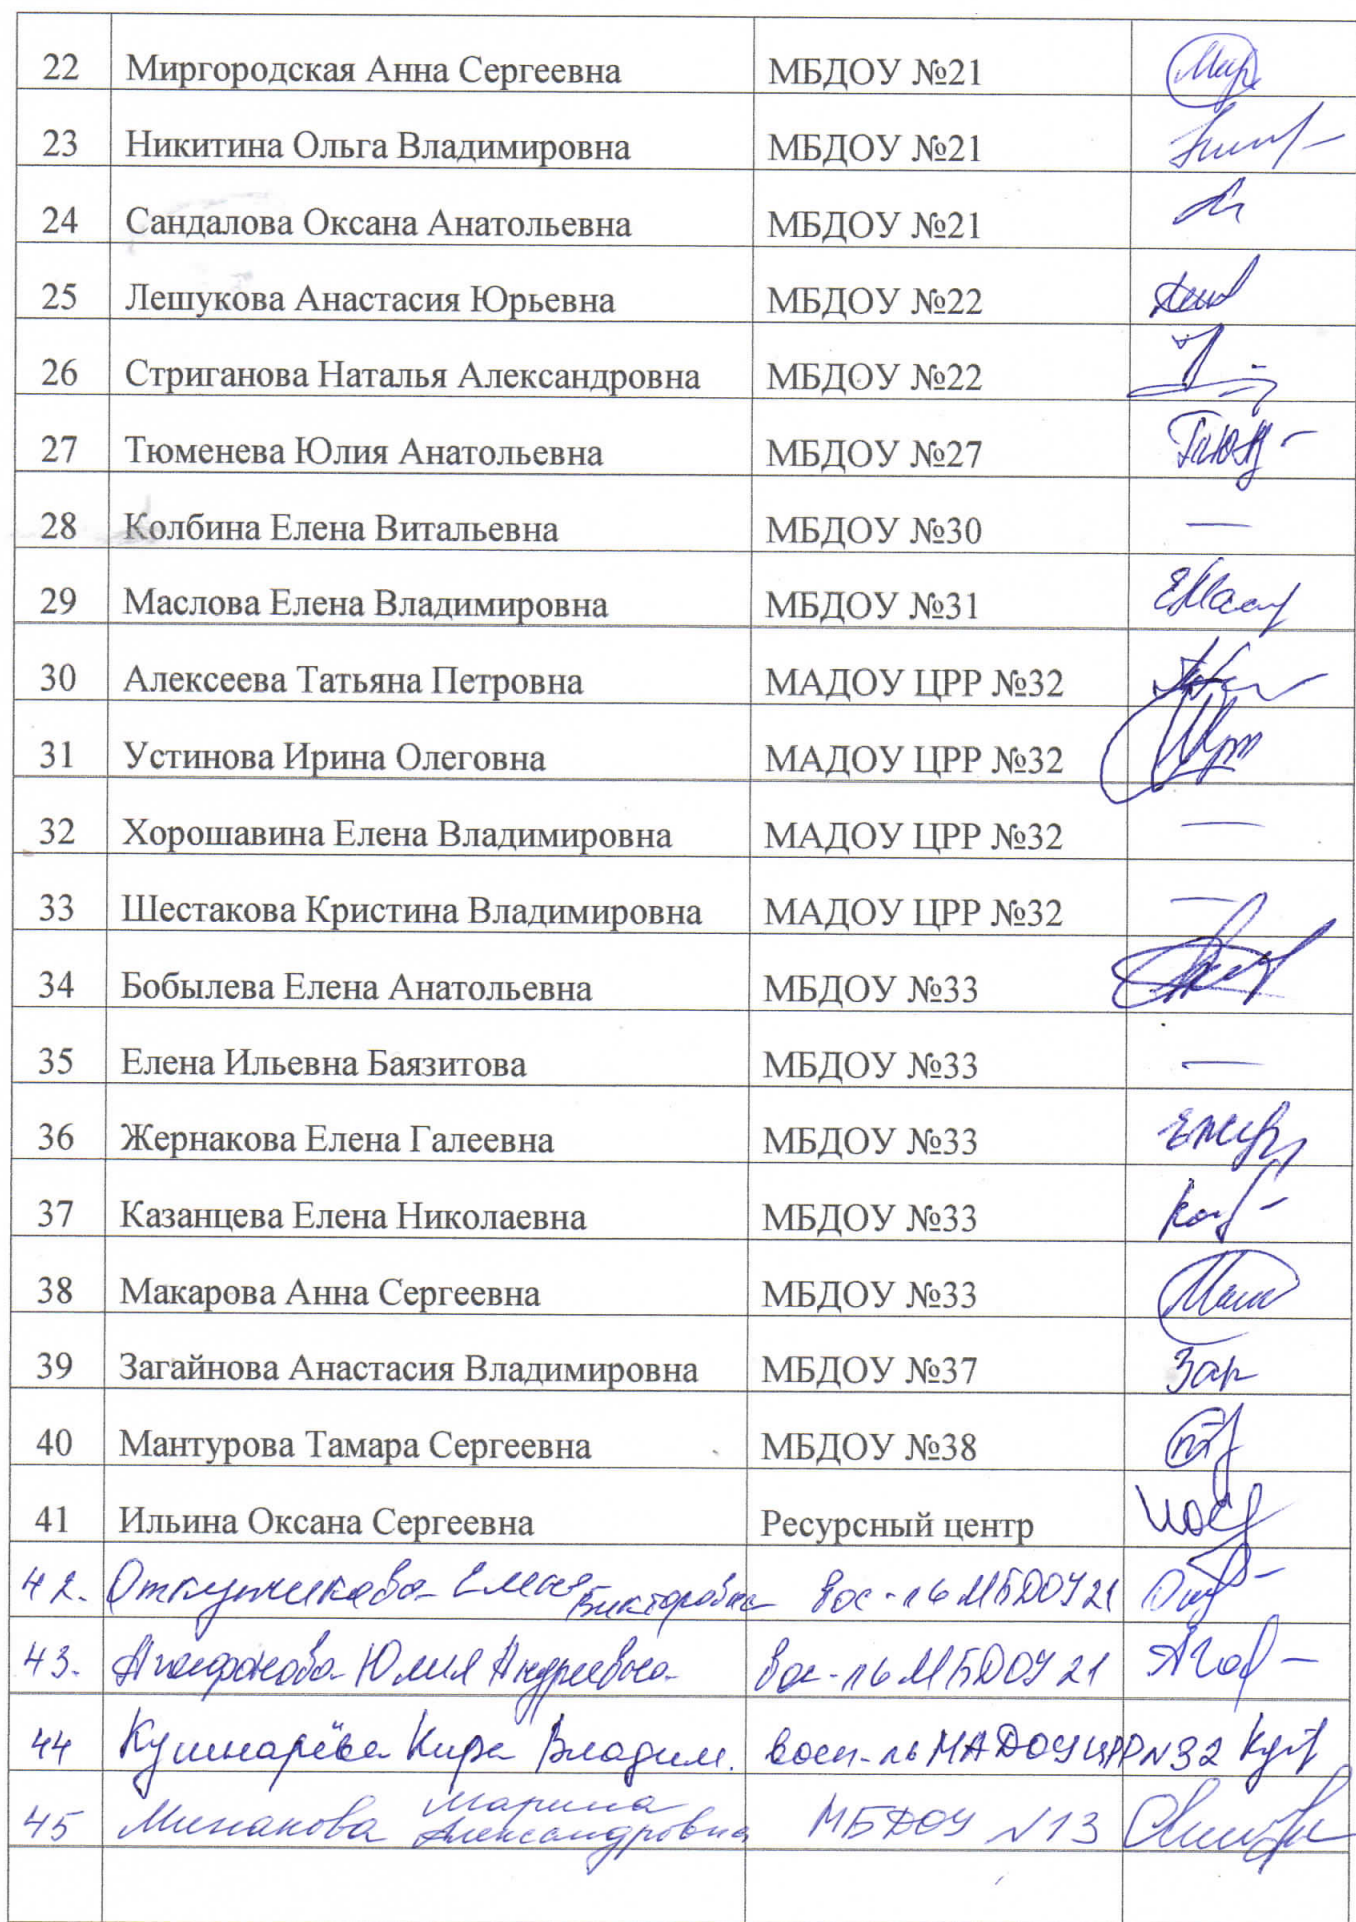 22 Миргородская Анна Сергеевна МБДОУ №21
23 Никитина Ольга Владимировна МБДОУ №21
24 Сандалова Оксана Анатольевна МБДОУ №21
25 Лешукова Анастасия Юрьевна МБДОУ №22
26 Стриганова Наталья Александровна МБДОУ №22
27 Тюменева Юлия Анатольевна МБДОУ №27
28 Колбина Елена Витальевна МБДОУ №30 —
29 Маслова Елена Владимировна МБДОУ №31
30 Алексеева Татьяна Петровна МАДОУ ЦРР №32
31 Устинова Ирина Олеговна МАДОУ ЦРР №32
32 Хорошавина Елена Владимировна МАДОУ ЦРР №32 —
33 Шестакова Кристина Владимировна МАДОУ ЦРР №32 —
34 Бобылева Елена Анатольевна МБДОУ №33
35 Елена Ильевна Баязитова МБДОУ №33 —
36 Жернакова Елена Галеевна МБДОУ №33
37 Казанцева Елена Николаевна МБДОУ №33
38 Макарова Анна Сергеевна МБДОУ №33
39 Загайнова Анастасия Владимировна МБДОУ №37
40 Мантурова Тамара Сергеевна МБДОУ №38
41 Ильина Оксана Сергеевна Ресурсный центр
42. Елена Викторовна вос-ль МБДОУ 21
43. Агафонова Юлия Андреевна вос-ль МБДОУ 21
44 Кушнарёва Кира Владим. восп-ль МАДОУ ЦРР №32
45 Минакова Марина Александровна МБДОУ №13